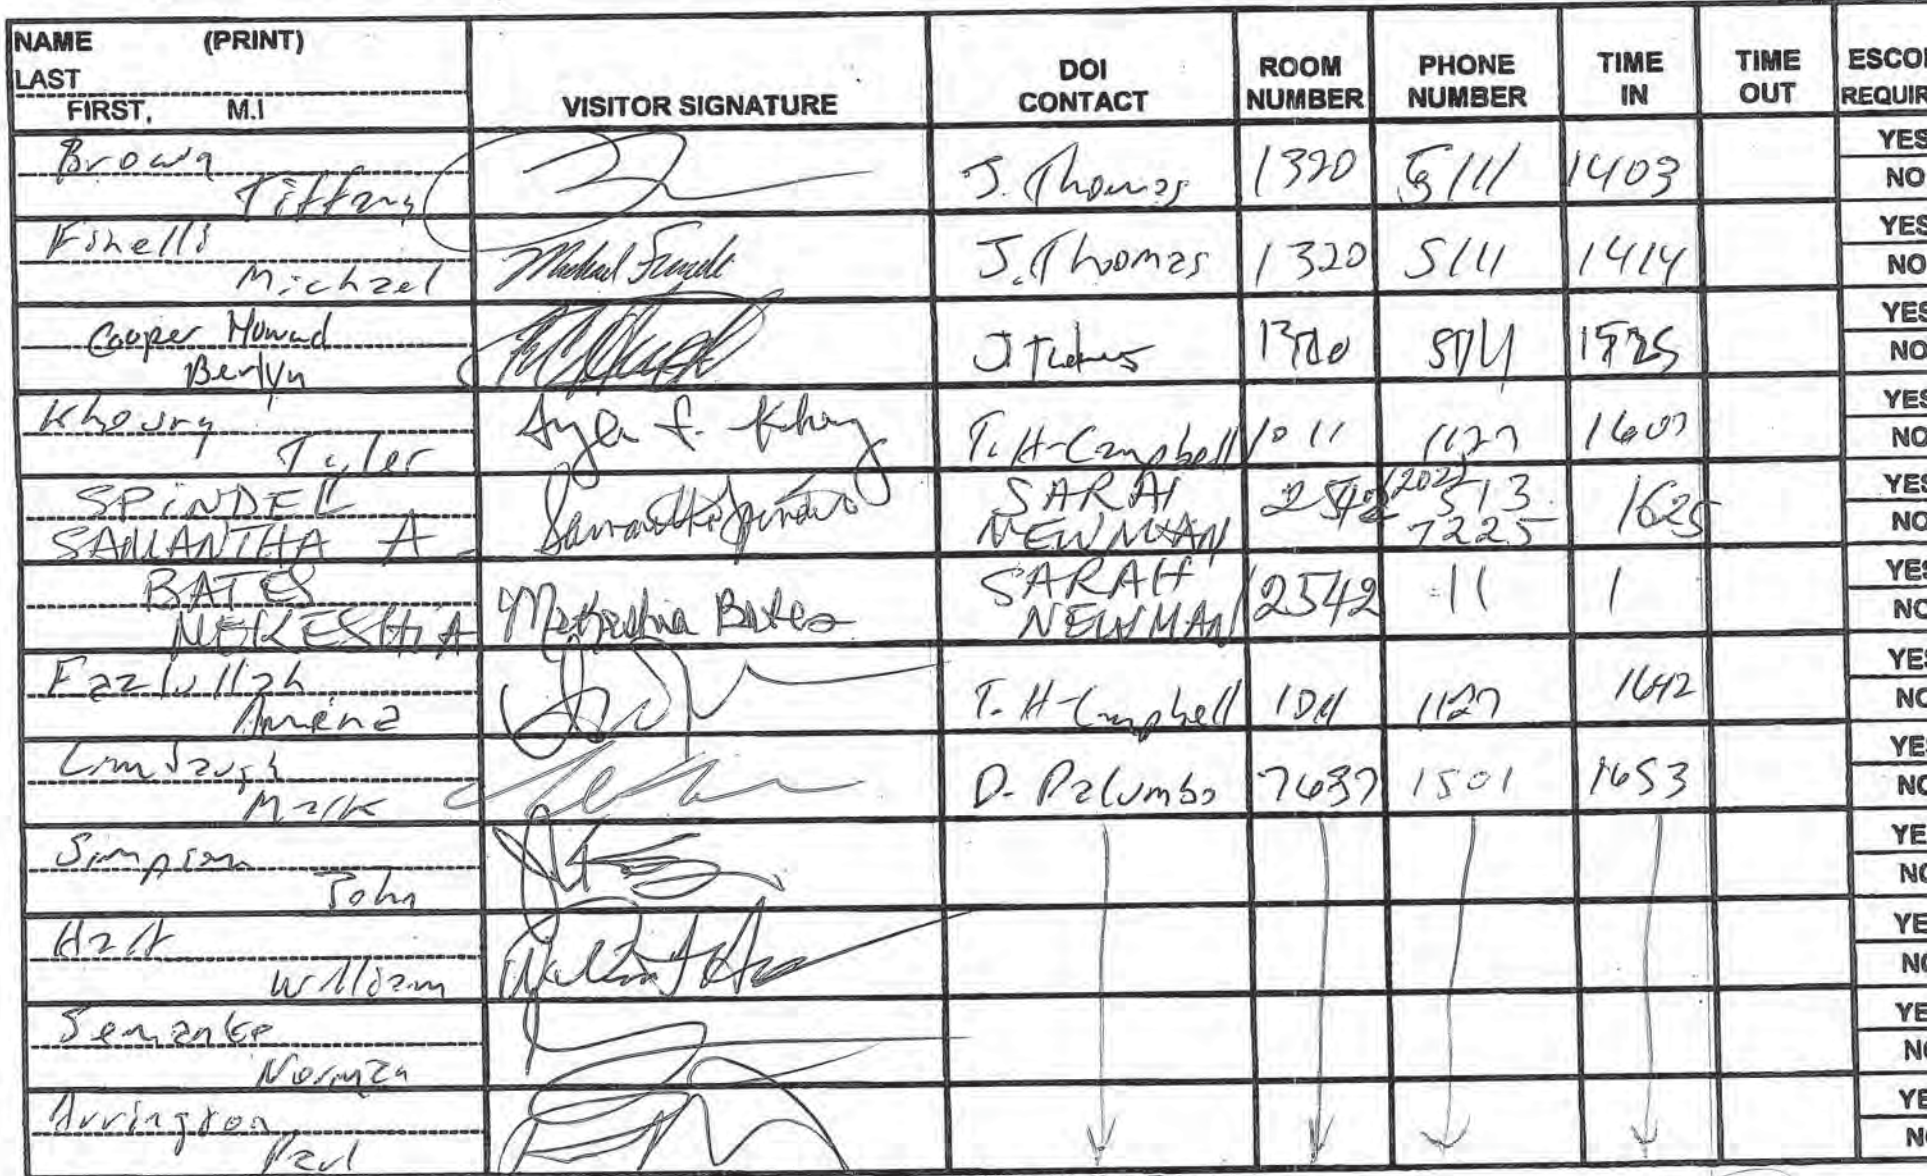 NAME (PRINT)
LAST
FIRST, M.I
VISITOR SIGNATURE
DOI
CONTACT
ROOM
NUMBER
PHONE
NUMBER
TIME
IN
TIME
OUT
ESCOR
REQUIR
Brown
Tiffany
J. Thomas 1320 5111 1403
YES
NO
Finelli
Michael
J. Thomas 1320 5111 1414
YES
NO
Cooper Howard
Berlyn
J Thomas 1320 5114
YES
NO
Khoury
Tyler
T. H-Campbell 1011 1127 1607
YES
NO
SPiNDEL
SAMANTHA A
SARAH
NEWMAN
2542 (202) 513
7225
1625
YES
NO
BATES
NEKESHIA
Nekeshia Bates
SARAH
NEWMAN
2542 11 1
YES
NO
Fazlullah
Amena
T. H-Campbell 1011 1127 1642
YES
NO
Limbaugh
Mark
D. Palumbo 7637 1501 1653
YES
NO
Simpson
John
YE
NO
Hart
William
YE
NO
Semanko
Norman
YE
NO
Arrington
Paul
YE
NO